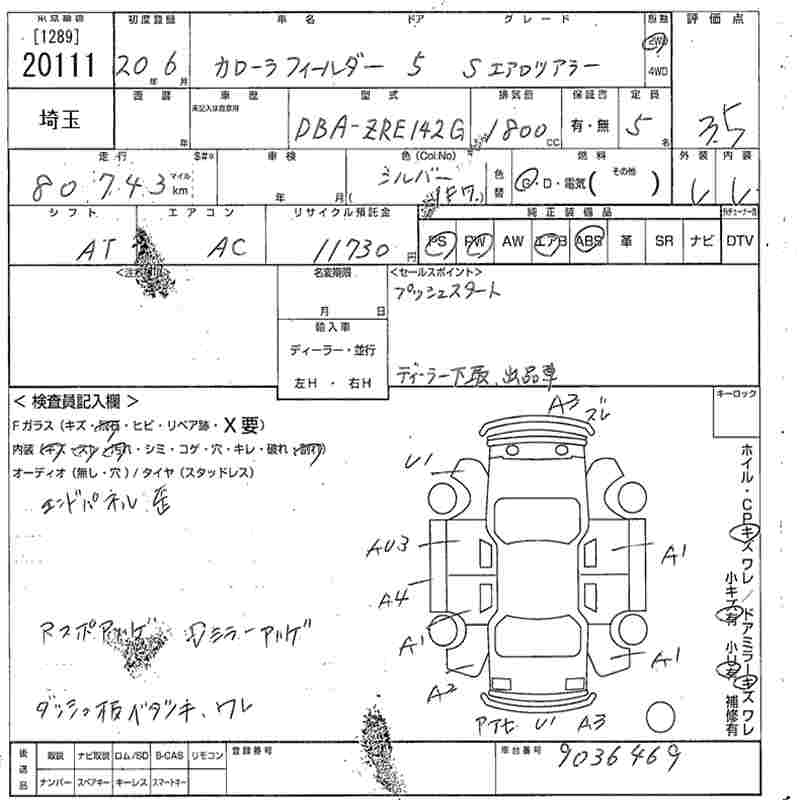 初度登録 車名 ドア グレード
[1289]
20111 20年6月 カローラフィールダー 5 Sエアロツアラー 2WD 4WD 評価点
埼玉 車歴 型式 排気量 保証書 定員
未記入は自家用
年 DBA-ZRE142G 1800cc 有・無 5名 3.5
走行 $#* 車検 色(Col.No) 燃料 外装 内装
80743 マイル km 年 月 シルバー (187) 色替 G・D・電気( その他 )
シフト エアコン リサイクル預託金 純正装備品
AT AC 11730円 PS PW AW エアB ABS 革 SR ナビ DTV
名変期限 <セールスポイント>
月 日 プッシュスタート
輸入車
ディーラー・並行
左H・右H ディーラー下取、出品車
<検査員記入欄> キーロック
Fガラス(キズ・飛石・ヒビ・リペア跡・X要)
内装(キズ・スレ・汚れ・シミ・コゲ・穴・キレ・破れ・)
オーディオ(無し・穴)/タイヤ(スタッドレス)
エンドパネル歪
A3 ズレ
U1
AU3 A1
A4
A1 A1
A2
U1 A3
ミラーアッゲ
ダッシュ板ベタツキ、ワレ
ホイル・CPキズワレ/ドアミラーキズワレ
小キズ有 小U有 補修有
後送品 取説 ナビ取説 ロム/SD B-CAS リモコン 登録番号 車台番号
ナンバー スペアキー キーレス スマートキー 9036469